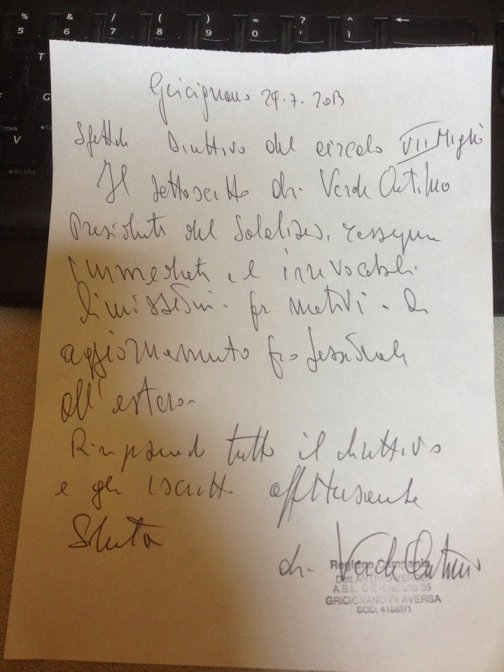 Gricignano 29.7.2013
Spettabile Direttivo del circolo VII Miglio
Il sottoscritto dr. Verde Antimo
Presidente del Sodalizio, rassegna
immediate ed irrevocabili
dimissioni per motivi di
aggiornamento professionale
all'estero.
Ringraziando tutto il direttivo
e gli iscritti affettuosamente
Saluta
dr. Verde Antimo
Regione Campania
GRICIGNANO DI AVERSA
COD: 41087/1